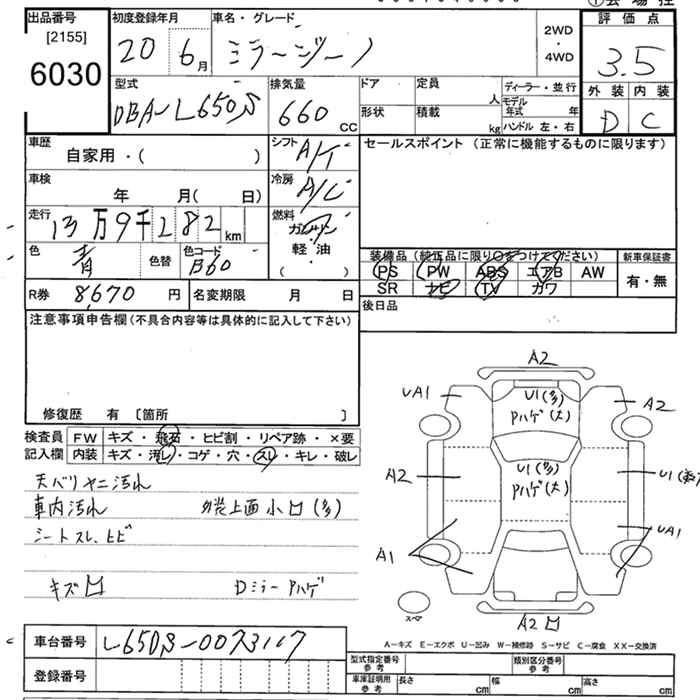 出品番号
[2155]
6030
初度登録年月
20 6月
車名・グレード
ミラージーノ
2WD
・
4WD
評価点
3.5
外装 内装
D C
型式
DBA-L650S
排気量
660
CC
ドア
形状
定員
人
積載
kg
ディーラー・並行
モデル年式 年
ハンドル 左・右
車歴
自家用・( )
シフト
A/T
車検
年 月( 日)
冷房
A/C
走行
13万9千282 km
燃料
ガソリン
・
軽・油
・
( )
色
青
色替
色コード
B60
R券 8,670 円
名変期限 月 日
セールスポイント (正常に機能するものに限ります)
装備品 (純正品に限り○をつけてください)
PS PW ABS エアB AW
SR ナビ TV カワ
新車保証書
有・無
後日品
注意事項申告欄 (不具合内容等は具体的に記入して下さい)
修復歴 有 〔箇所 〕
検査員記入欄
FW キズ・飛石・ヒビ割・リペア跡・×要
内装 キズ・汚レ・コゲ・穴・スレ・キレ・破レ
天バリヤニ汚れ
車内汚れ
外装上面小凹(多)
シートスレ、ヒビ
キズ凹
Dミラー Pハゲ
A2
UA1
U1(多)
Pハゲ(大)
A2
A2
U1(多)
Pハゲ(大)
A1
UA1
A2凹
スペア
A-キズ E-エクボ U-凹み W-補修跡 S-サビ C-腐食 XX-交換済
車台番号
登録番号
型式指定番号
参考
類別区分番号
参考
車庫証明用
参考
長さ cm
幅 cm
高さ cm